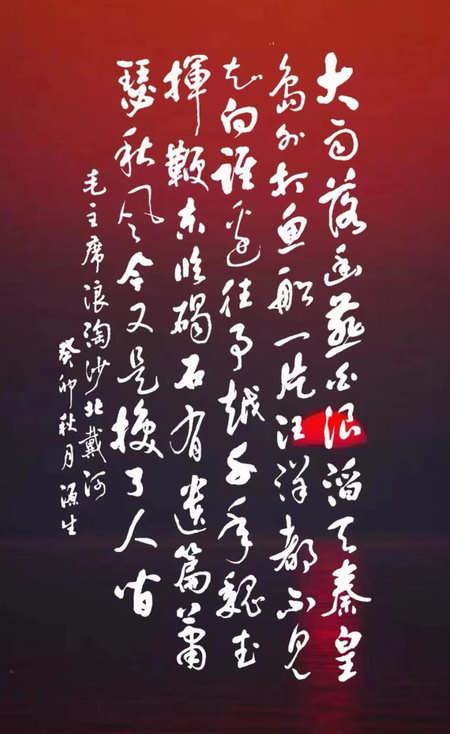 大雨落幽燕白浪滔天秦皇
島外打魚船一片汪洋都不見
知向誰邊往事越千年魏武
揮鞭东臨碣石有遺篇蕭
瑟秋风今又是換了人间
毛主席浪淘沙北戴河
癸卯秋月源生